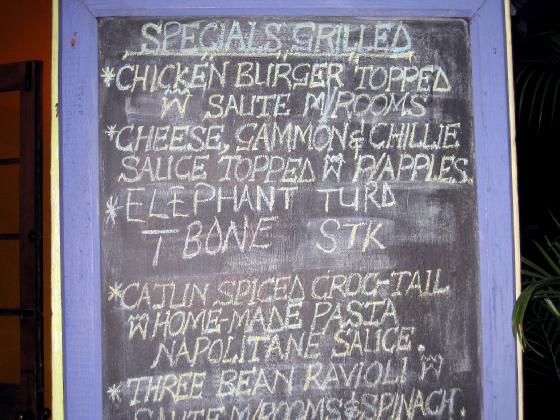 SPECIALS GRILLED
*CHICKEN BURGER TOPPED
W SAUTE M/ROOMS
*CHEESE, GAMMON & CHILLIE
SAUCE TOPPED W P/APPLES.
*ELEPHANT TURD
T BONE STK
*CAJUN SPICED CROC-TAIL
W HOME-MADE PASTA
NAPOLITANE SAUCE.
*THREE BEAN RAVIOLI W
SAUTE M/ROOMS & SPINACH